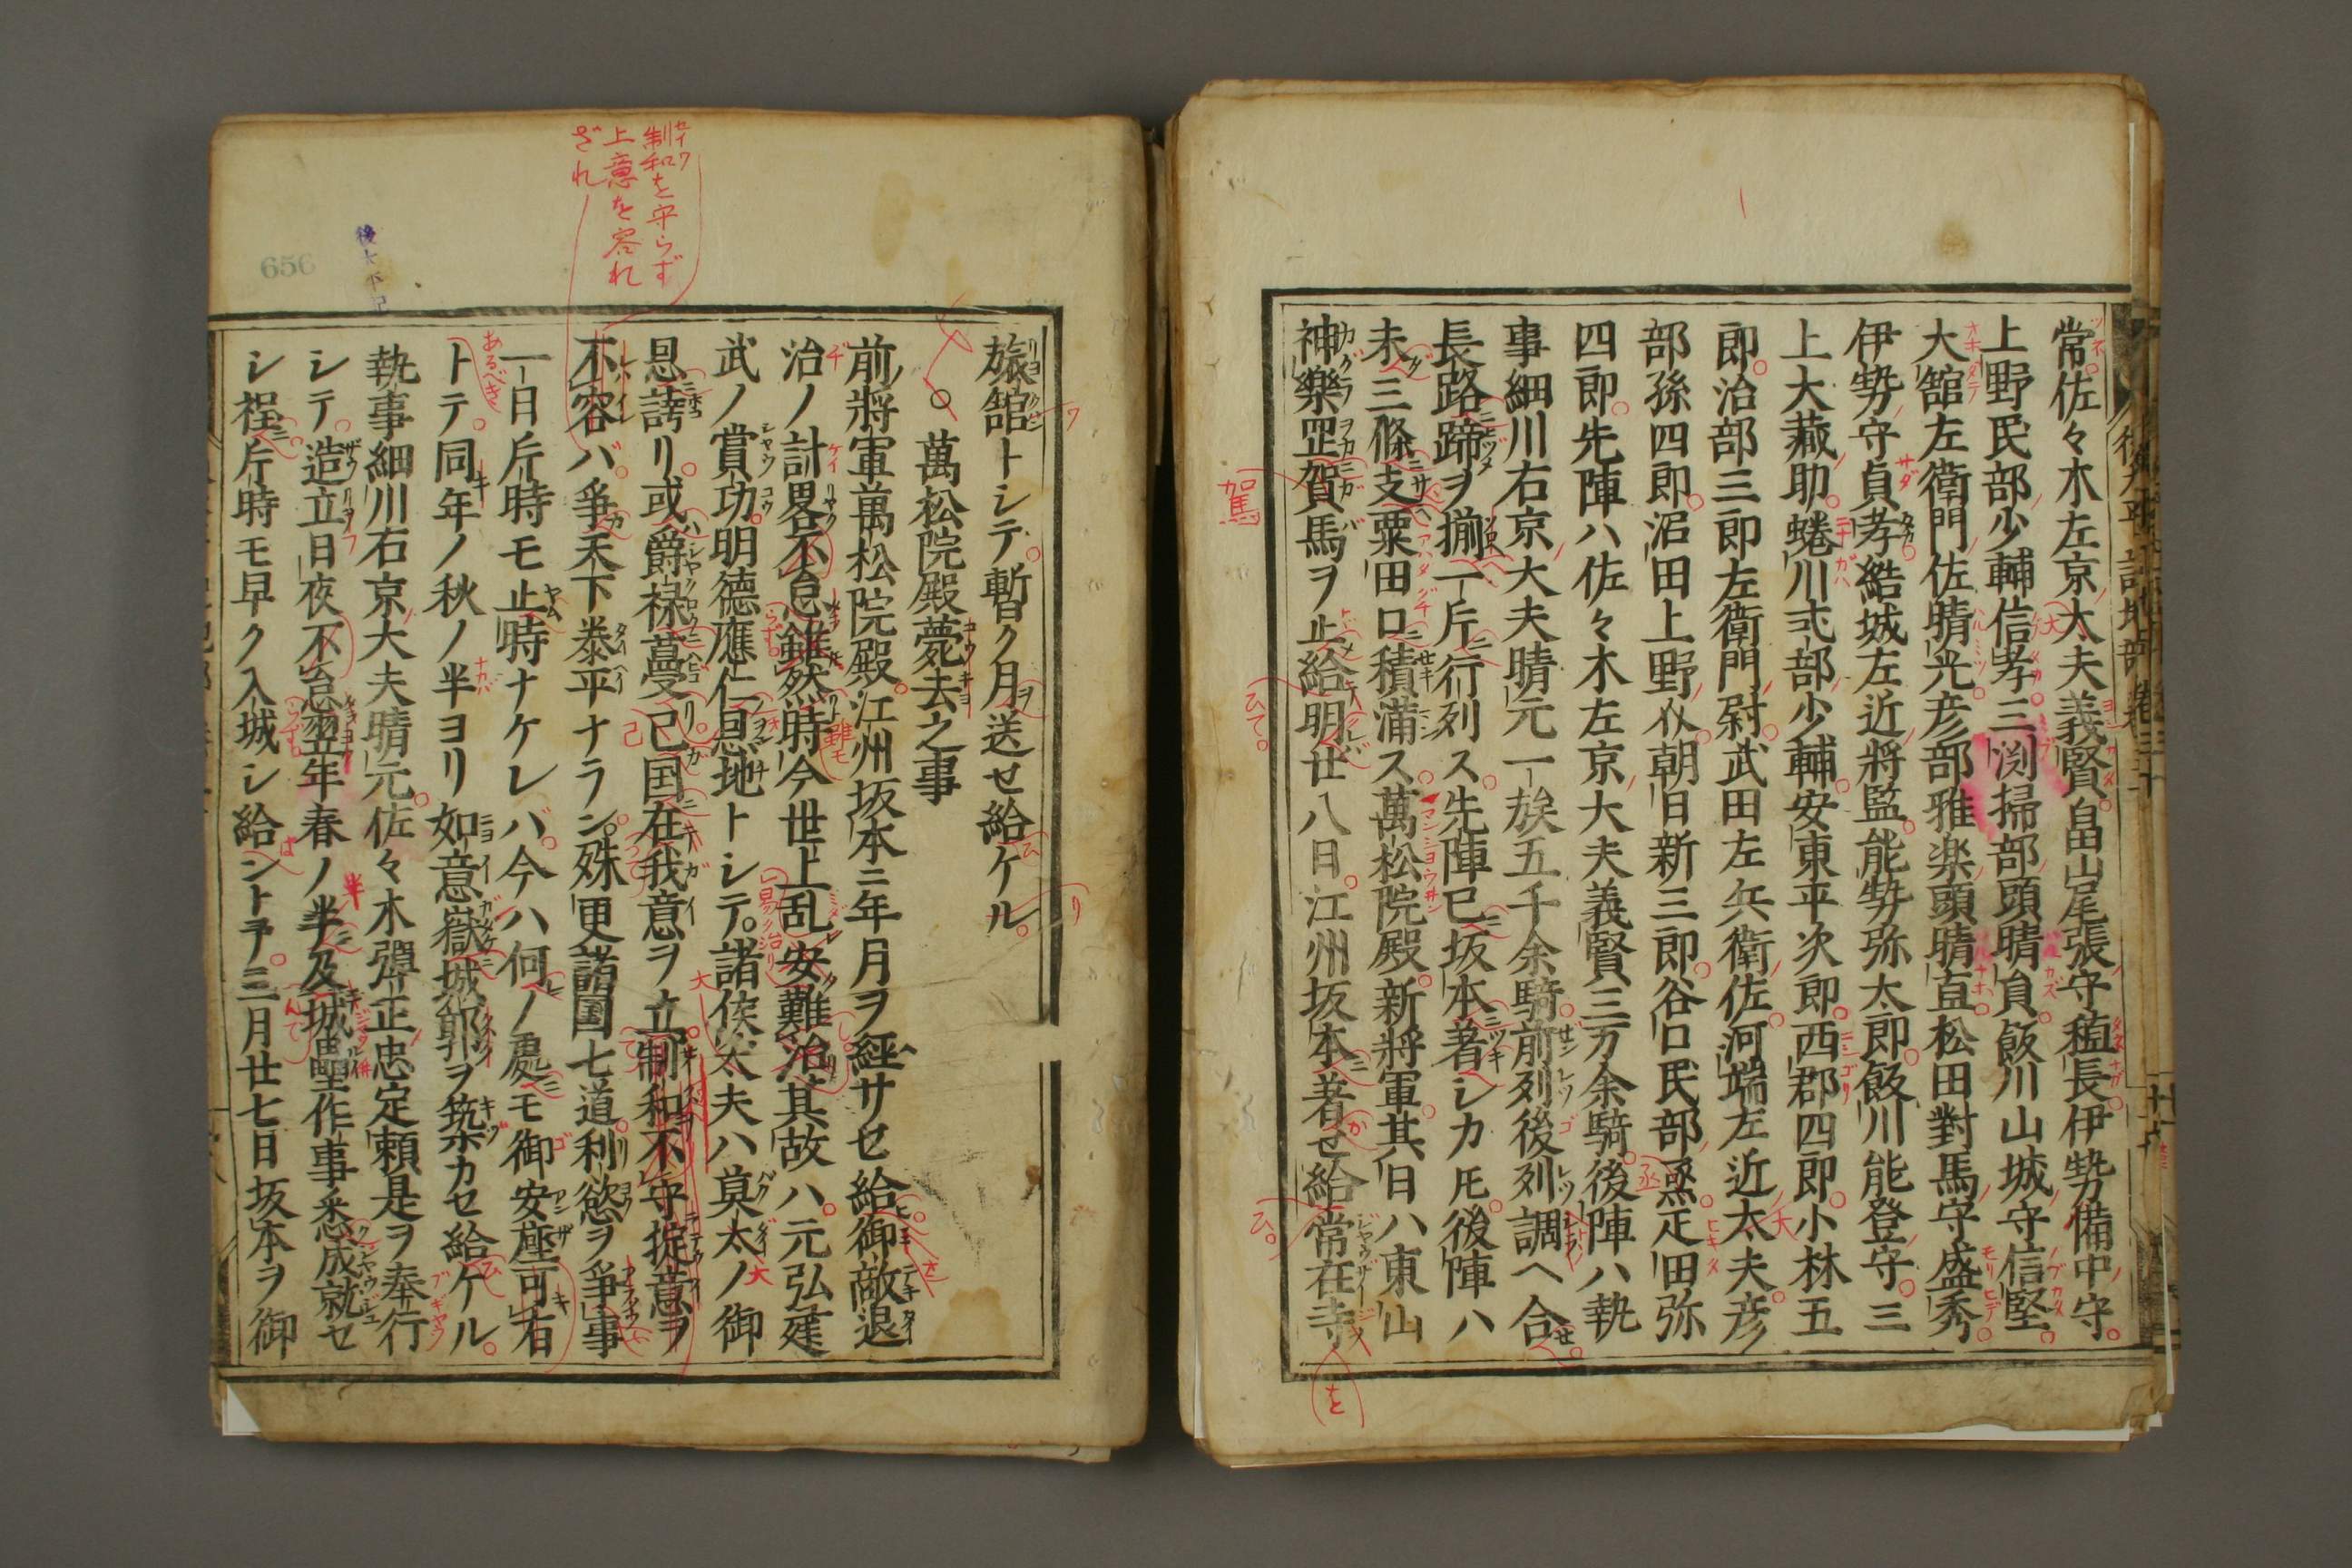 常佐々木左京大夫義賢畠山尾張守稙長伊勢備中守
上野民部少輔信孝三渕掃部頭晴員飯川山城守信堅
大舘左衛門佐晴光彦部雅楽頭晴直松田對馬守盛秀
伊勢守貞孝結城左近將監能勢弥太郎飯川能登守三
上大蔵助蜷川式部少輔安東平次郎西郡四郎小林五
郎治部三郎左衛門尉武田左兵衛佐河端左近太夫彦
部孫四郎沼田上野介朝日新三郎谷口民部丞疋田弥
四郎先陣ハ佐々木左京大夫義賢三万余騎後陣ハ執
事細川右京大夫晴元一族五千余騎前列後列調ヘ合
長路蹄ヲ揃一斤行列ス先陣已坂本著シカ𪜈後陣ハ
未三條支粟田口積蒲ス萬松院殿新將軍其日ハ東山
神樂罡賀馬ヲ止給明廿八日江州坂本著セ給常在寺
駕
後太平記地部 巻三十
656
後太平記
制和を守らず
上意を容れ
ざれ
旅舘トシテ暫ク月送セ給ケル
○萬松院殿薨去之事
前將軍萬松院殿江州坂本ニ年月ヲ經サセ給御敵退
治ノ計畧不怠雖然時今世上乱安難治其故ハ元弘建
武ノ賞功明德應仁恩地トシテ諸侯太夫ハ莫太ノ御
恩誇リ或爵禄蔓己国在我意ヲ立制和不守掟意ヲ
不容バ爭天下泰平ナラン殊更諸国七道利慾ヲ爭事
一日斤時モ止時ナケレバ今ハ何ノ處モ御安座可有
トテ同年ノ秋ノ半ヨリ如意嶽城郭ヲ筑カセ給ケル
執事細川右京大夫晴元佐々木彈正忠定頼是ヲ奉行
シテ造立日夜不怠翌年春ノ半及城壘作事悉成就セ
シ程斤時モ早ク入城シ給ントヲ三月廿七日坂本ヲ御